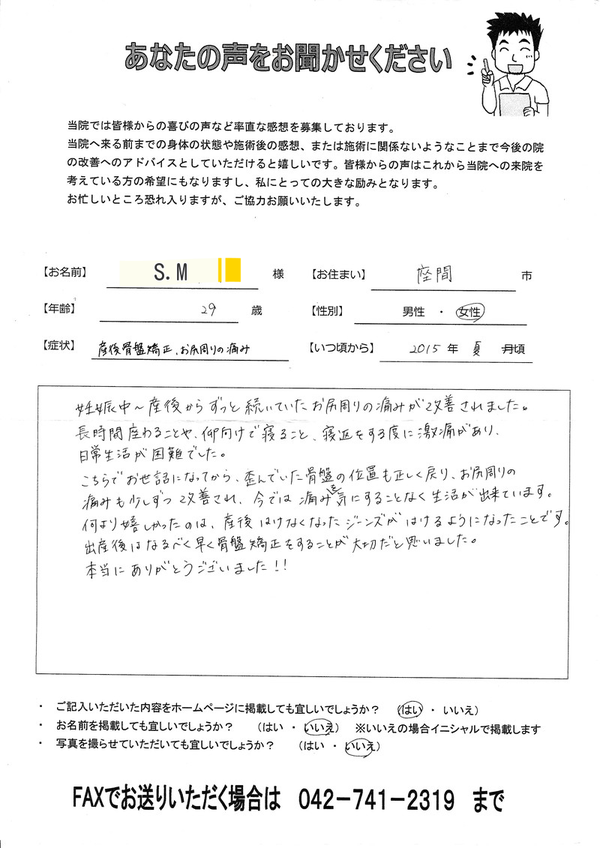 あなたの声をお聞かせください
当院では皆様からの喜びの声など率直な感想を募集しております。
当院へ来る前までの身体の状態や施術後の感想、または施術に関係ないようなことまで今後の院
の改善へのアドバイスとしていただけると嬉しいです。皆様からの声はこれから当院への来院を
考えている方の希望にもなりますし、私にとっての大きな励みとなります。
お忙しいところ恐れ入りますが、ご協力お願いいたします。
【お名前】 S.M 様 【お住まい】 座間 市
【年齢】 29 歳 【性別】 男性 ・ 女性
【症状】 産後骨盤矯正、お尻周りの痛み 【いつ頃から】 2015 年 夏 月頃
妊娠中～産後からずっと続いていたお尻周りの痛みが改善されました。
長時間座わることや、仰向けで寝ること、寝返をする度に激痛があり、
日常生活が困難でした。
こちらでお世話になってから、歪んでいた骨盤の位置も正しく戻り、お尻周りの
痛みも少しずつ改善され、今では痛みを気にすることなく生活が出来ています。
何より嬉しかったのは、産後はけなくなったジーンズがはけるようになったことです。
出産後はなるべく早く骨盤矯正をすることが大切だと思いました。
本当にありがとうございました!!
・ ご記入いただいた内容をホームページに掲載しても宜しいでしょうか? (はい ・ いいえ)
・ お名前を掲載しても宜しいでしょうか? (はい ・ いいえ) ※いいえの場合イニシャルで掲載します
・ 写真を撮らせていただいても宜しいでしょうか? (はい ・ いいえ)
FAXでお送りいただく場合は 042-741-2319 まで